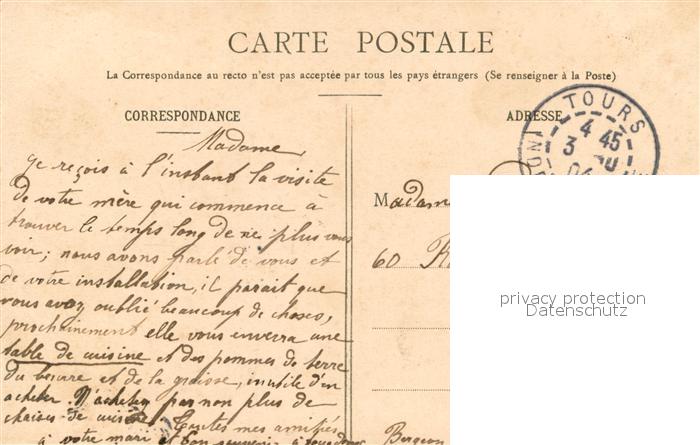 CARTE POSTALE
La Correspondance au recto n'est pas acceptée par tous les pays étrangers (Se renseigner à la Poste)
CORRESPONDANCE
ADRESSE
TOURS
4 45
3
Madame,
Je reçois à l'instant la visite
de votre mère qui commence à
trouver le temps long de ne plus vous
voir; nous avons parlé de vous et
de votre installation, il parait que
vous avez oublié beaucoup de choses,
prochainement elle vous enverra une
table de cuisine et des pommes de terre
du beurre et de la graisse, inutile d'en
acheter. N'achetez pas non plus de
chaises de cuisine Toutes mes amitiés
à votre mari et bon souvenir à
Madame
60
privacy protection
Datenschutz